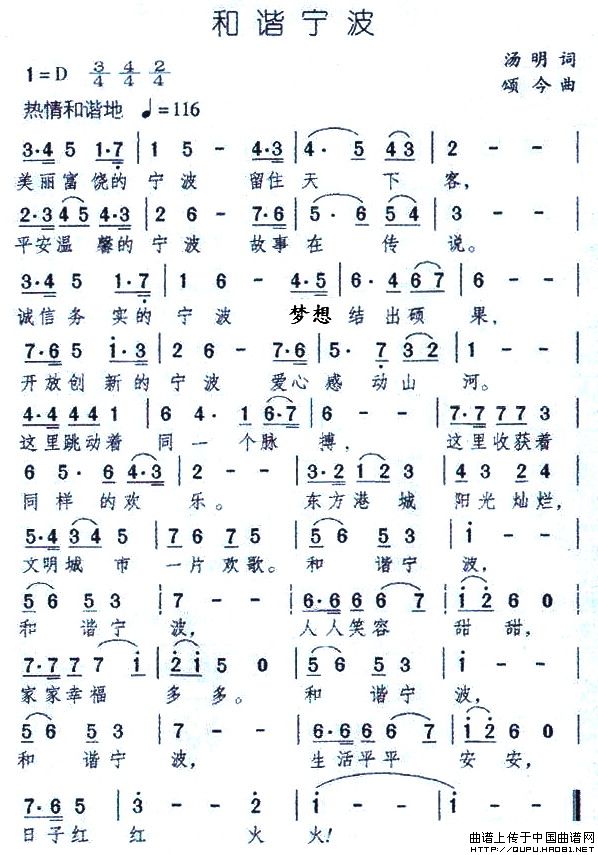 和谐宁波
汤明词
1=D 3/4 4/4 2/4
颂今曲
热情和谐地 ♩=116
3·4 5 1·7 | 1 5 - 4·3 | 4· 5 43 | 2 - - |
美丽富饶的宁波 留住天下客，
2·3 45 4·3 | 2 6 - 7·6 | 5· 6 54 | 3 - - |
平安温馨的宁波 故事在传说。
3·4 5 1·7 | 1 6 - 4·5 | 6· 4 67 | 6 - - |
诚信务实的宁波 梦想结出硕果，
7·6 5 1·3 | 2 6 - 7·6 | 5· 7 32 | 1 - - |
开放创新的宁波 爱心感动山河。
4·4 44 1 | 6 4· 1 6·7 | 6 - - | 7·7 77 3 |
这里跳动着同一个脉搏， 这里收获着
6 5· 6 4·3 | 2 - - | 3·2 12 3 | 43 24 |
同样的欢乐。 东方港城阳光灿烂，
5·4 34 5 | 76 75 | 56 53 | 1 - - |
文明城市一片欢歌。和谐宁波，
56 53 | 7 - - | 6·6 66 67 | 12 6 0 |
和谐宁波， 人人笑容甜甜，
7·7 77 7 1 | 2·1 5 0 | 56 53 | 1 - - |
家家幸福多多。 和谐宁波，
56 53 | 7 - - | 6·6 66 67 | 12 6 0 |
和谐宁波， 生活平平安安，
7·6 5 | 3 - - 2 | 1 - - | 1 - - |
日子红红火火！
曲谱上传于中国曲谱网
HTTP://QUPU.HAO81.NET